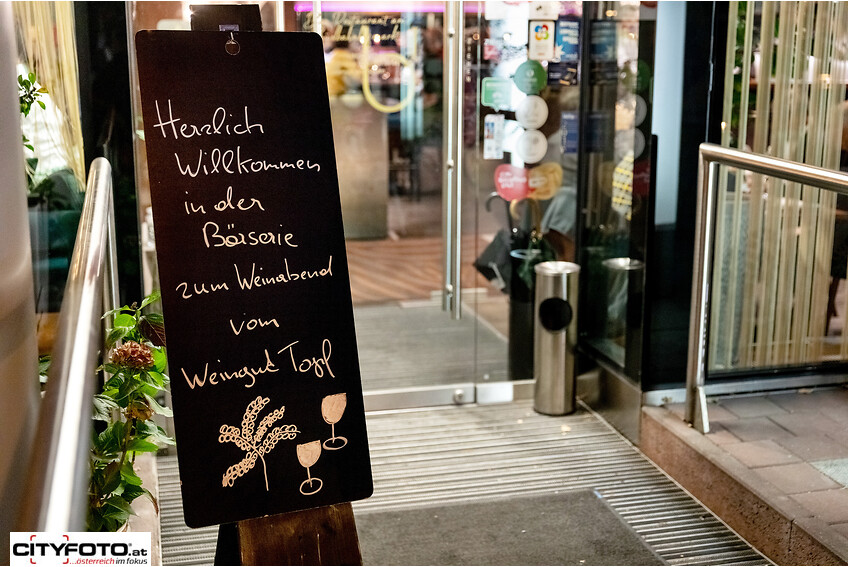 Restaurant am
Herzlich
Willkommen
in der
Börserie
zum Weinabend
vom
Weingut Topf
CITYFOTO.at
...österreich im fokus